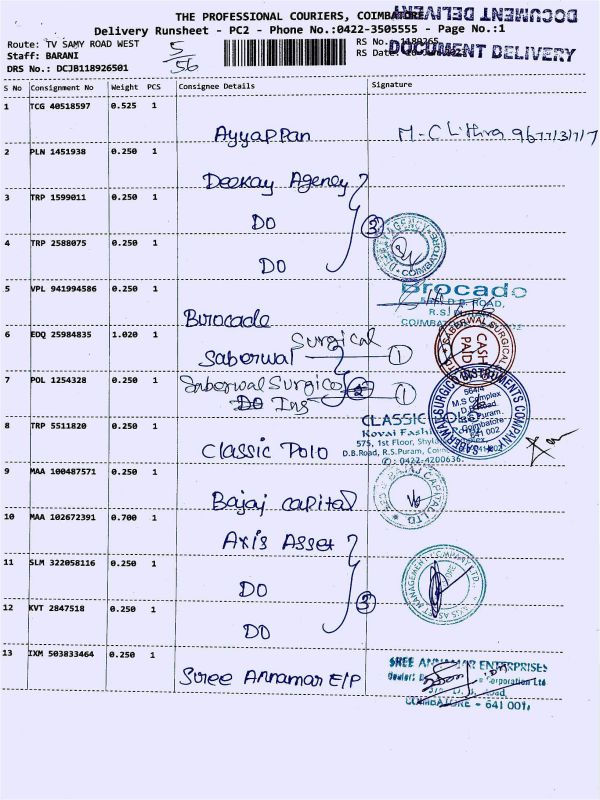 THE PROFESSIONAL COURIERS, COIMBATORE
DOCUMENT DELIVERY
Delivery Runsheet - PC2 - Phone No.:0422-3505555 - Page No.:1
Route: TV SAMY ROAD WEST
5/56
RS No.: 1180265
DOCUMENT DELIVERY
Staff: BARANI
RS Date:
DRS No.: DCJB118926501
S No Consignment No Weight PCS Consignee Details Signature
1 TCG 40518597 0.525 1
Ayyappan M-C Lithra 9677131717
2 PLN 1451938 0.250 1
Deekay Agency
3 TRP 1599011 0.250 1
DO 3
4 TRP 2588075 0.250 1
DO
COIMBATORE
5 VPL 941994586 0.250 1
Brocade
D.B. ROAD,
R.S.
Brocade
6 EDQ 25984835 1.020 1
Surgical
Saberwal 1
SABERWAL SURGICAL
CASH PAID
7 POL 1254328 0.250 1
Saberwal Surgico 2 1
DO Ins
SABERWAL SURGICO INSTRUMENTS COMPANY
564/4
M.S Complex
D.B.Road,
R.S.Puram,
Coimbatore
641 002
8 TRP 5511820 0.250 1
CLASSIC POLO
Kovai Fashi
575, 1st Floor, Shyla
D.B.Road, R.S.Puram, Coim
0422-4200636
Classic Polo
9 MAA 100487571 0.250 1
Bajaj capital
BAJAJ CAPITAL LTD
10 MAA 102672391 0.700 1
Axis Asset
11 SLM 322058116 0.250 1
DO 3
AXIS ASSET MANAGEMENT COMPANY LTD.
12 KVT 2847518 0.250 1
DO
13 IXM 503833464 0.250 1
Sree Annamar E/P
SREE ANNAMAR ENTERPRISES
Dealer: Corporation Ltd
Road,
COIMBATORE - 641 001.